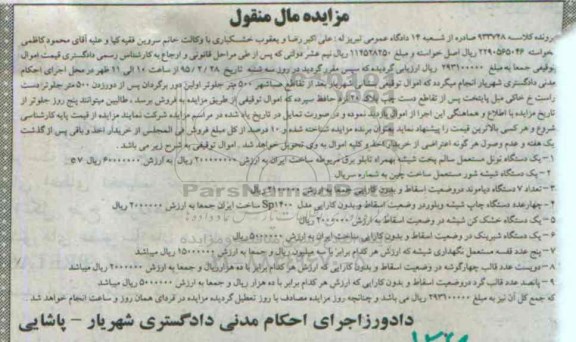 مزایده مال منقول
پرونده کلاسه ۹۳۳۷۴۸ صادره از شعبه ۱۴ دادگاه عمومی تبریز له : علی اکبر رضا و یعقوب خشکباری با وکالت خانم سروین فقیه کیا و علیه آقای محمود کاظمی
خواسته ۲۲۹۰۵۶۵۰۴۶ ریال اصل خواسته و مبلغ ۱۱۴۵۲۸۲۵۰ ریال نیم عشر دولتی که پس از طی مراحل قانونی و ارجاع به کارشناس رسمی دادگستری قیمت اموال
توقیفی جمعا به مبلغ ۲۹۳۱۰۰۰۰۰ ریال ارزیابی گردیده که سپس مقرر گردید در روز سه شنبه تاریخ ۹۵/۲/۲۸ از ساعت ۱۰ الی ۱۱ ظهر در محل اجرای احکام
مدنی دادگستری شهریار انجام میگردد که اموال توقیفی به نشانی شهریار بعد از تقاطع صباشهر ۵۰۰ متر جلوتر اولین دور برگردان پس از دورزدن ۵۰۰ متر جلوتر دست
راست خ خاکی مبل پایتخت پس از تقاطع دست چپ پلاک ۲۸ نزد حافظ سپرده که اموال توقیفی از طریق مزایده به فروش برسد ، طالبین میتوانند پنج روز جلوتر از
تاریخ مزایده با اطلاع و هماهنگی این اجرا از اموال بازدید نموده و در صورت تمایل در تاریخ یاد شده در مراسم مزایده شرکت نمایند مزایده از قیمت پایه کارشناسی
شروع و هر کسی بالاترین قیمت را پیشنهاد نماید بعنوان برنده مزایده شناخته شده و ۱۰ درصد از کل مبلغ فروش فی المجلس از خریدار اخذ و باقی پس از گذشت
یک هفته و عدم وصول هر گونه اعتراضی از خریدار اخذ و کلیه اموال به وی تحویل خواهد شد . اموال توقیفی به شرح زیر می باشد .
۱- یک دستگاه تونل مستعمل سالم پخت شیشه بهمراه تابلو برق مربوطه ساخت ایران به ارزش ۲۰۰۰۰۰۰۰۰ ریال
۲- یک دستگاه شیشه شور مستعمل ساخت چین به شماره سریال به ارزش ۶۰۰۰۰۰۰۰ ریال
۳- تعداد ۷ دستگاه دیاموند دروضعیت اسقاط و بدون کارایی
۴- چهارعدد دستگاه چاپ شیشه ویلوردر وضعیت اسقاط و بدون کارایی مدل Sp1400 ساخت ایران جمعا به ارزش ۲۰۰۰۰۰۰ ریال
۵- یک دستگاه خشک کن شیشه در وضعیت اسقاط به ارزش ۲۰۰۰۰۰۰ ریال
۶- یک دستگاه شیرینک در وضعیت اسقاط و بدون کارایی ساخت ایران به ارزش ۵۰۰۰۰۰۰ ریال
۷- پنج عدد قفسه مستعمل نگهداری شیشه که ارزش هر کدام برابر با سه میلیون ریال و جمعا به ارزش ۱۵۰۰۰۰۰۰ ریال میباشد
۸- دویست عدد قالب چهارگوشه در وضعیت اسقاط و بدون کارایی که ارزش هر کدام برابر با ده هزارریال و جمعا به ارزش ۲۰۰۰۰۰۰ ریال میباشد
۹- پانصد عدد قالب گرد دروضعیت اسقاط و بدون کارایی که ارزش هر کدام برابر با ده هزار ریال و جمعا به ارزش ۵۰۰۰۰۰۰ ریال میباشد
که جمع کل آن نیز به مبلغ ۲۹۳۱۰۰۰۰۰ ریال می باشد و چنانچه روز مزایده مصادف با روز تعطیل گردیده مزایده در فردای همان روز و ساعت انجام خواهد شد
دادورزاجرای احکام مدنی دادگستری شهریار - پاشایی